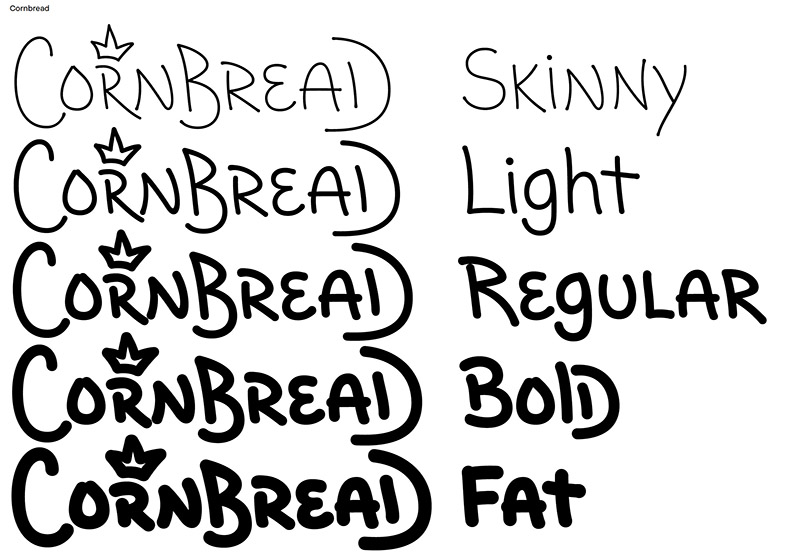 Cornbread
CornBreaD Skinny
CornBreaD Light
CornBreaD Regular
CornBreaD Bold
CornBreaD Fat